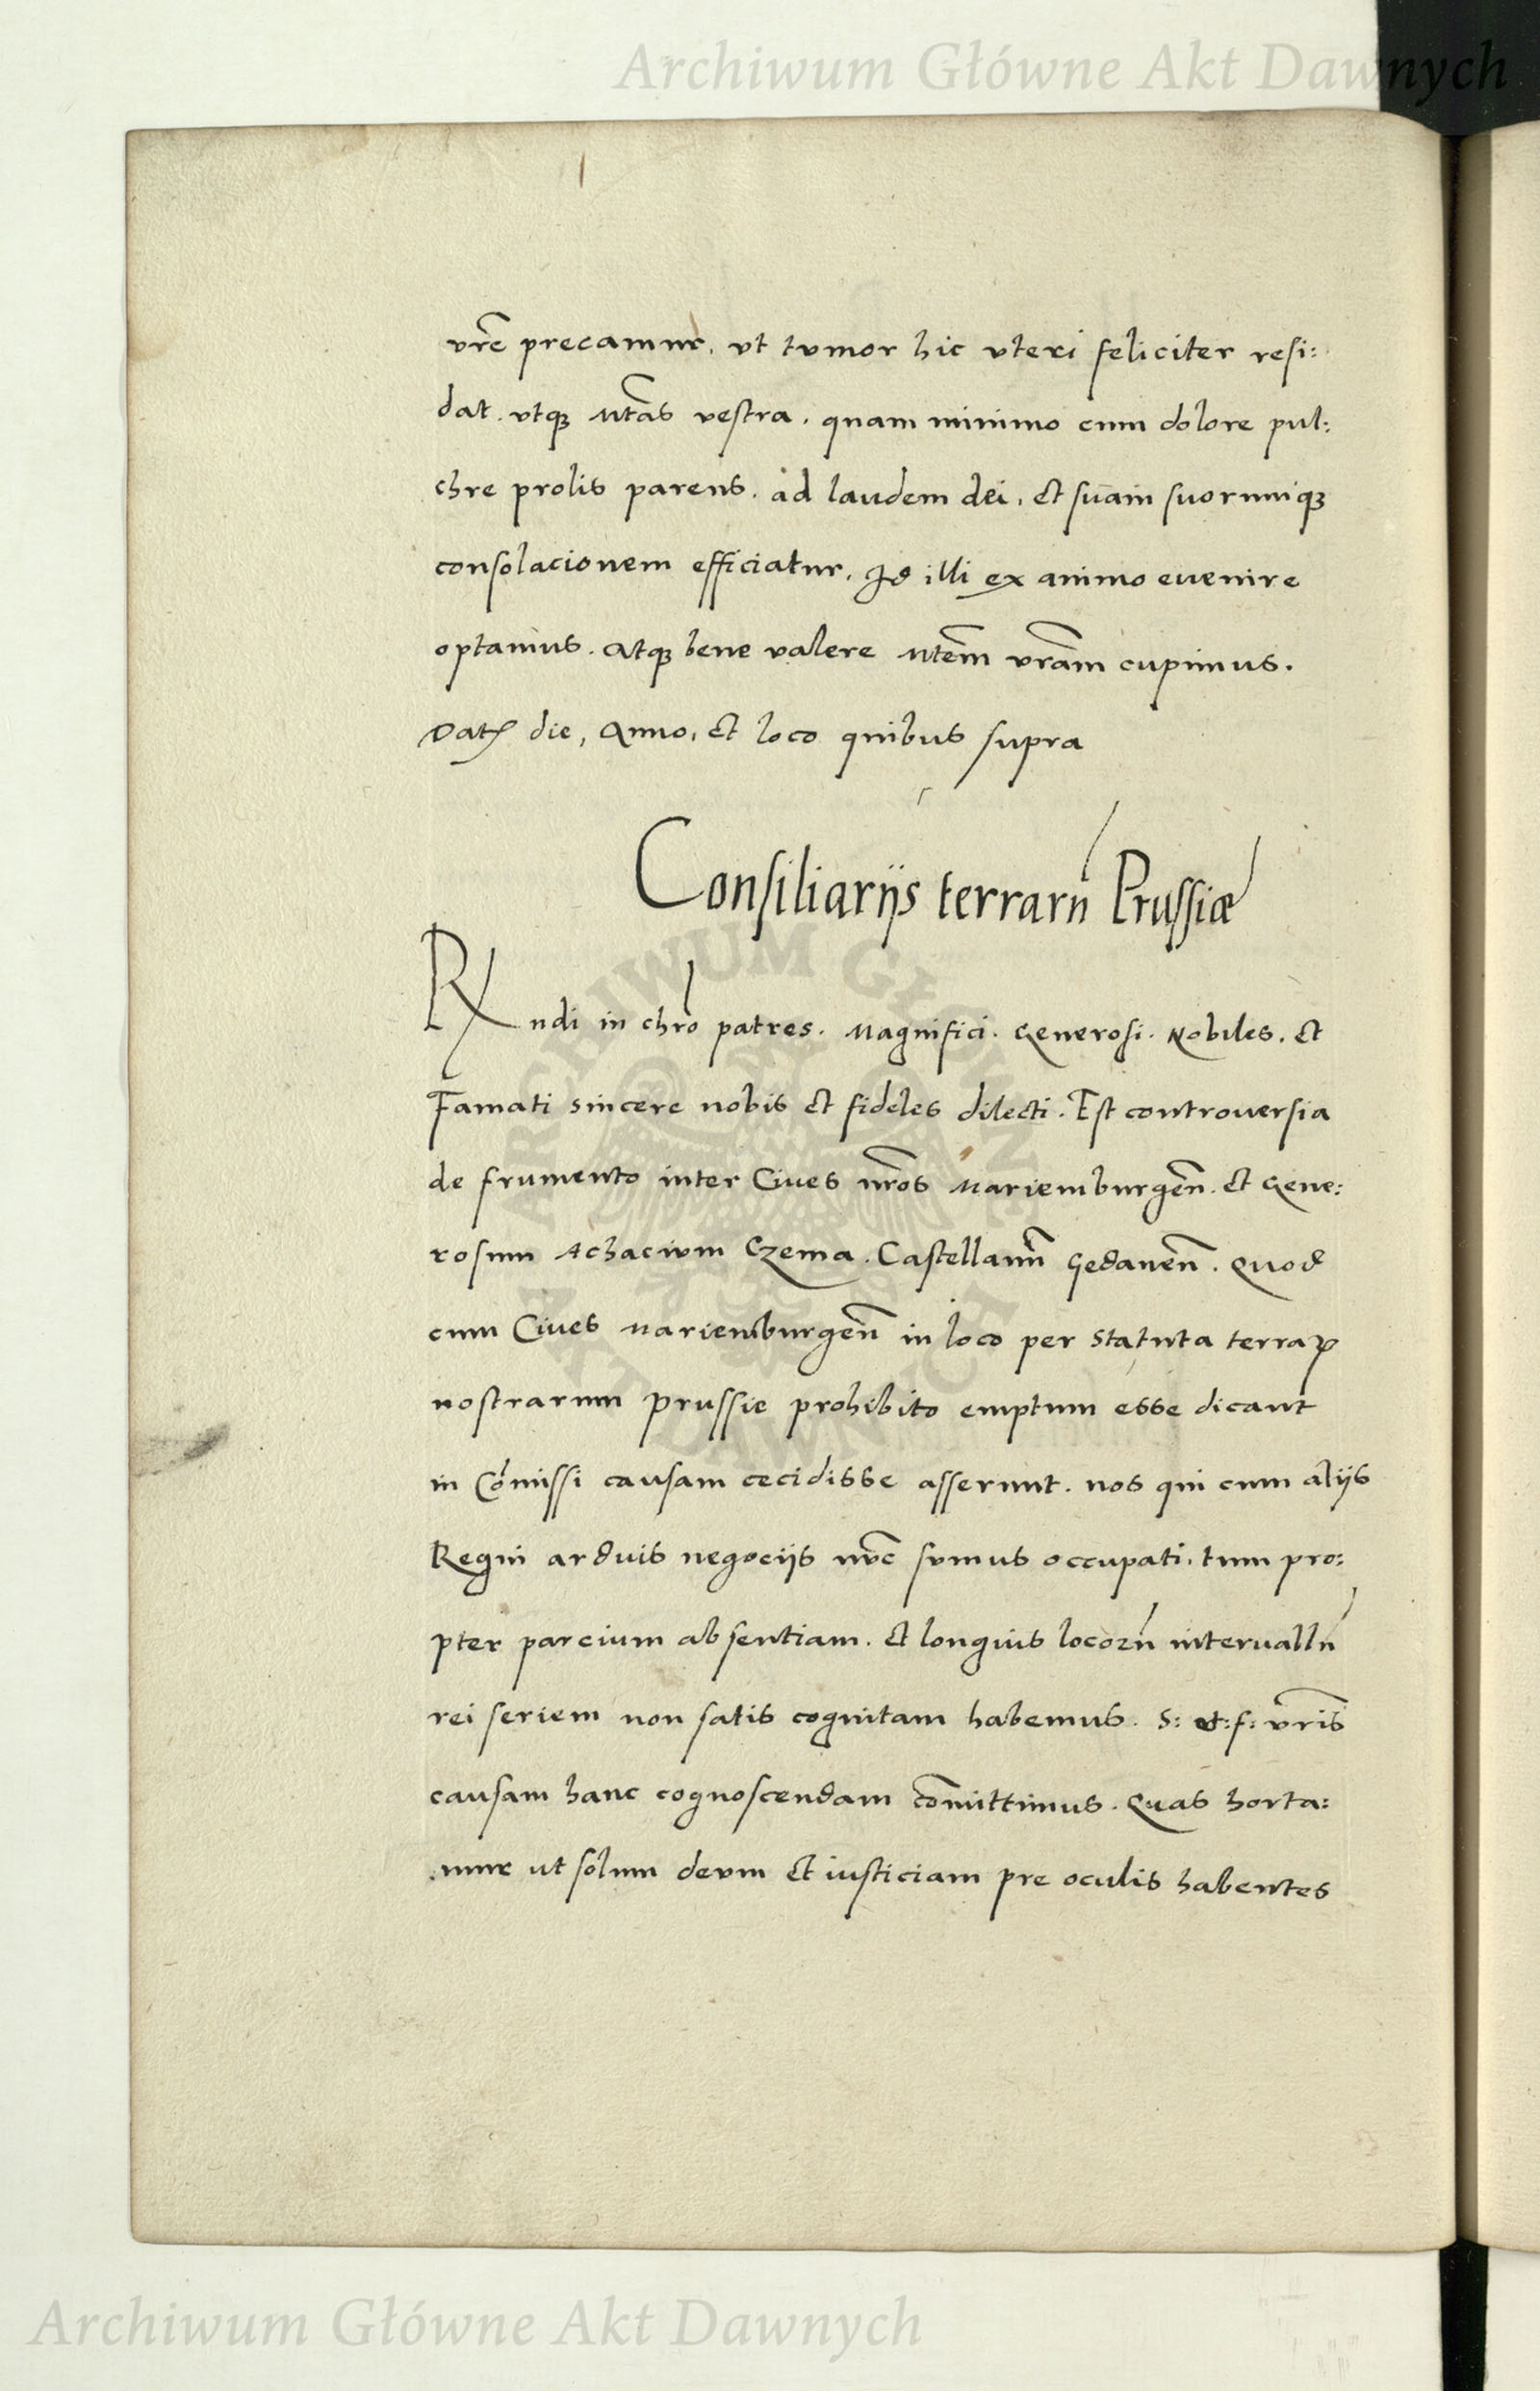 Archiwum Główne Akt Dawnych
vr̃e precamur. vt tumor hic vteri feliciter resi:
dat. vtqꝫ Mt̃as vestra. quam minimo cum dolore pul:
chre prolis parens. ad laudem dei, et suam suorumqꝫ
consolacionem efficiatur. Id illi ex animo euenire
optamus. Atqꝫ bene valere Mtẽm vrãm cupimus.
Datꝭ die, Anno, et loco quibus supra
Consiliarijs terrarũ Prussiæ
Rndi in chr̃o patres. Magnifici. Generosi. Nobiles. et
Famati sincere nobis et fideles dilecti. Est controuersia
de frumento inter Ciues nr̃os Mariemburgeñ. et Gene:
rosum Achacium Czema. Castellanũ Gedaneñ. Quod
cum Ciues Mariemburgeñ in loco per statuta terraꝝ
nostrarum prussie prohibito emptum esse dicant
in Cõmissi causam cecidisse asserunt. nos qui cum alijs
Regni arduis negocijs nũc sumus occupati, tum pro:
pter parcium absentiam. et longius locorũ interuallũ
rei seriem non satis cognitam habemus. S: et: f: vr̃is
causam hanc cognoscendam cõmittimus. Quas horta:
mur ut solum deum et iusticiam pre oculis habentes
ARCHIWUM GŁÓWNE AKT DAWNYCH
Archiwum Główne Akt Dawnych